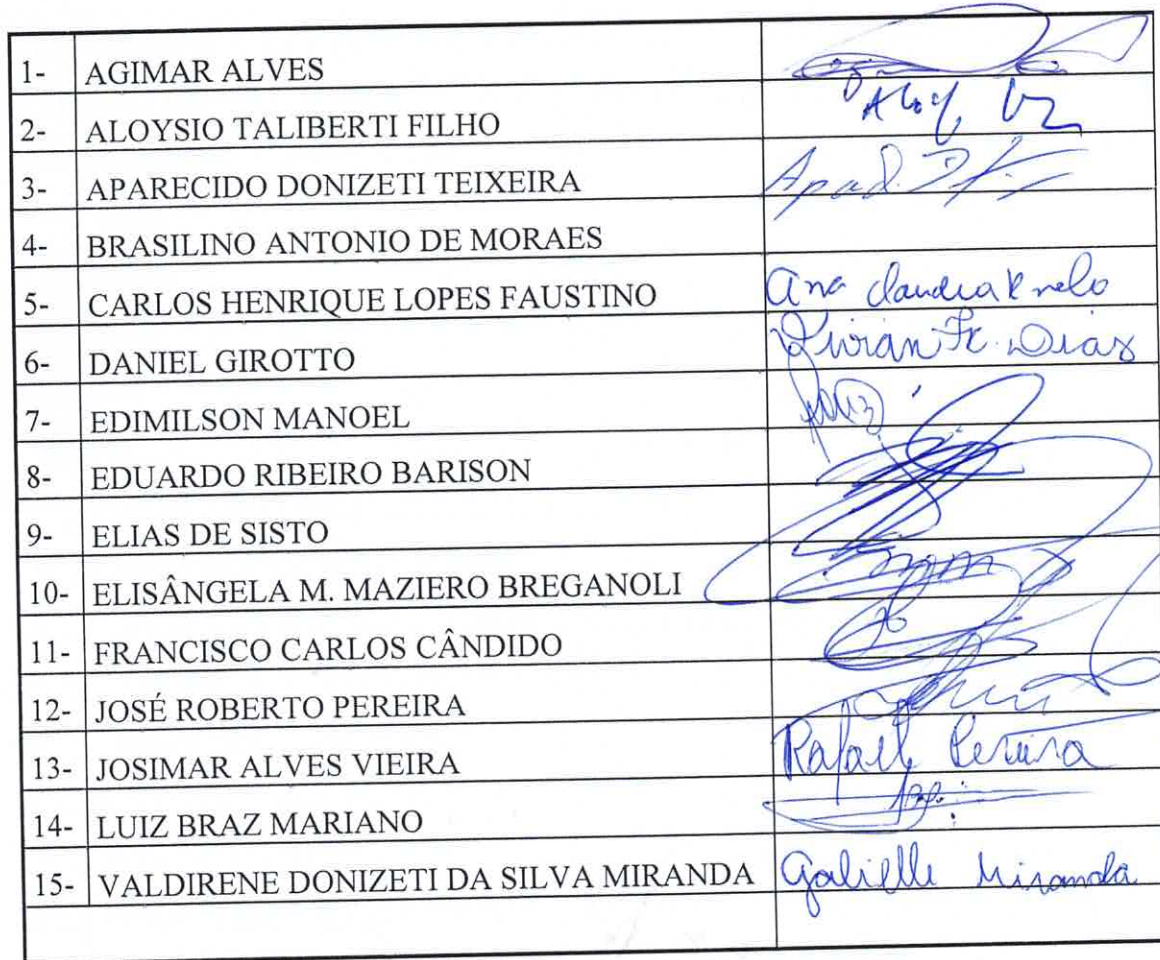 1- AGIMAR ALVES
2- ALOYSIO TALIBERTI FILHO
3- APARECIDO DONIZETI TEIXEIRA
4- BRASILINO ANTONIO DE MORAES
5- CARLOS HENRIQUE LOPES FAUSTINO Ana Claudia
6- DANIEL GIROTTO Dias
7- EDIMILSON MANOEL
8- EDUARDO RIBEIRO BARISON
9- ELIAS DE SISTO
10- ELISÂNGELA M. MAZIERO BREGANOLI
11- FRANCISCO CARLOS CÂNDIDO
12- JOSÉ ROBERTO PEREIRA
13- JOSIMAR ALVES VIEIRA Rafael Pereira
14- LUIZ BRAZ MARIANO
15- VALDIRENE DONIZETI DA SILVA MIRANDA Miranda